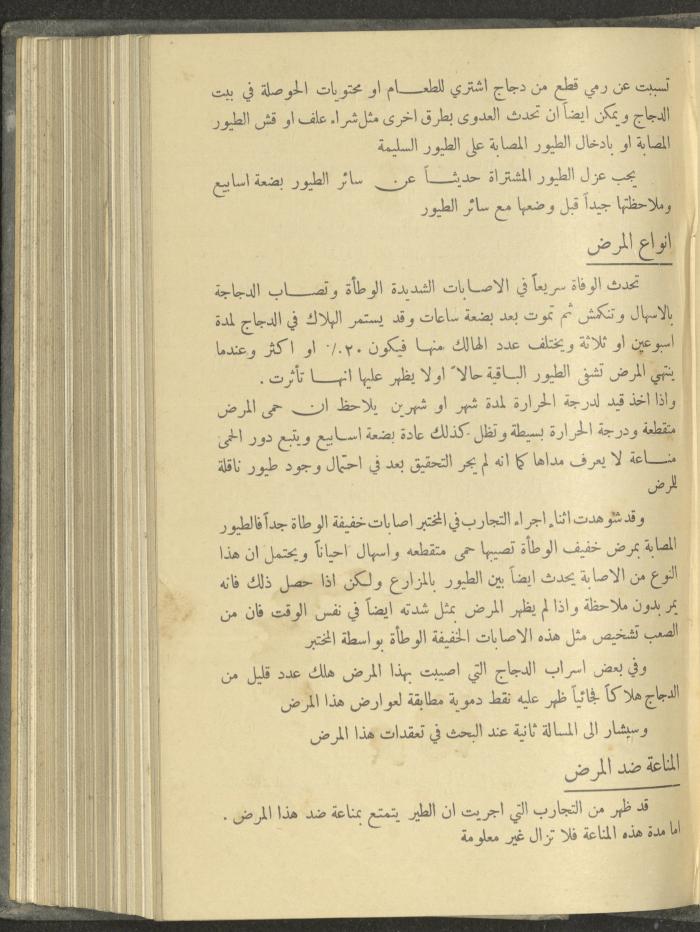 تسببت عن رمي قطع من دجاج اشتري للطعام او محتويات الحوصلة في بيت
الدجاج ويمكن ايضاً ان تحدث العدوى بطرق اخرى مثل شراء علف او قش الطيور
المصابة او بادخال الطيور المصابة على الطيور السليمة
يجب عزل الطيور المشتراة حديثاً عن سائر الطيور بضعة اسابيع
وملاحظتها جيداً قبل وضعها مع سائر الطيور
انواع المرض
تحدث الوفاة سريعاً في الاصابات الشديدة الوطأة وتصاب الدجاجة
بالاسهال وتنكمش ثم تموت بعد بضعة ساعات وقد يستمر الهلاك في الدجاج لمدة
اسبوعين او ثلاثة ويختلف عدد الهالك منها فيكون ٢٠٪ او اكثر وعندما
ينتهي المرض تشفى الطيور الباقية حالاً او لا يظهر عليها انها تأثرت .
واذا اخذ قيد لدرجة الحرارة لمدة شهر او شهرين يلاحظ ان حمى المرض
متقطعة ودرجة الحرارة بسيطة وتظل كذلك عادة بضعة اسابيع ويتبع دور الحمى
مناعة لا يعرف مداها كما انه لم يجر التحقيق بعد في احتمال وجود طيور ناقلة
للمرض
وقد شوهدت اثناء اجراء التجارب في المختبر اصابات خفيفة الوطاة جداً فالطيور
المصابة بمرض خفيف الوطأة تصيبها حمى متقطعه واسهال احياناً ويحتمل ان هذا
النوع من الاصابة يحدث ايضاً بين الطيور بالمزارع ولكن اذا حصل ذلك فانه
يمر بدون ملاحظة واذا لم يظهر المرض بمثل شدته ايضاً في نفس الوقت فان من
الصعب تشخيص مثل هذه الاصابات الخفيفة الوطأة بواسطة المختبر
وفي بعض اسراب الدجاج التي اصيبت بهذا المرض هلك عدد قليل من
الدجاج هلاكاً فجائياً ظهر عليه نقط دموية مطابقة لعوارض هذا المرض
وسيشار الى المسالة ثانية عند البحث في تعقدات هذا المرض
المناعة ضد المرض
قد ظهر من التجارب التي اجريت ان الطير يتمتع بمناعة ضد هذا المرض .
اما مدة هذه المناعة فلا تزال غير معلومة